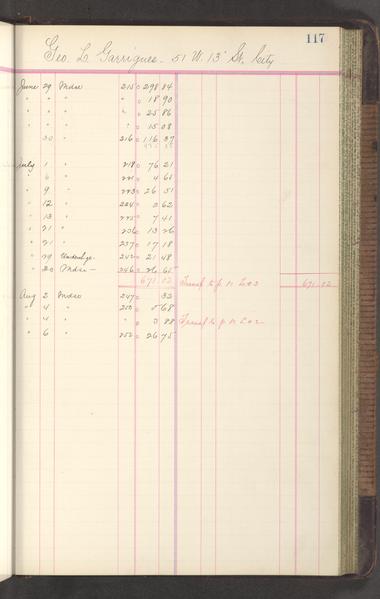 117
Geo. L. Garrigues - 51 W. 13 St. City
June 29 Mdse 215 298 84
" " " " 18 90
" " " " 25 86
" " " " 15 08
" 30 " 216 116 37
July 1 " 218 76 21
" 6 " 221 4 65
" 9 " 223 26 51
" 12 " 224 2 62
" 13 " 225 7 41
" 21 " 13 26
" 21 " 237 17 18
" 29 21 48
" 30 Mdse - 246 26 65
671.02 Transf to p. 671.02
Aug 2 Mdse 247 32
" 4 " 250 5 68
" 4 " " 3 88 Transf to p.
" 6 " 252 26 75